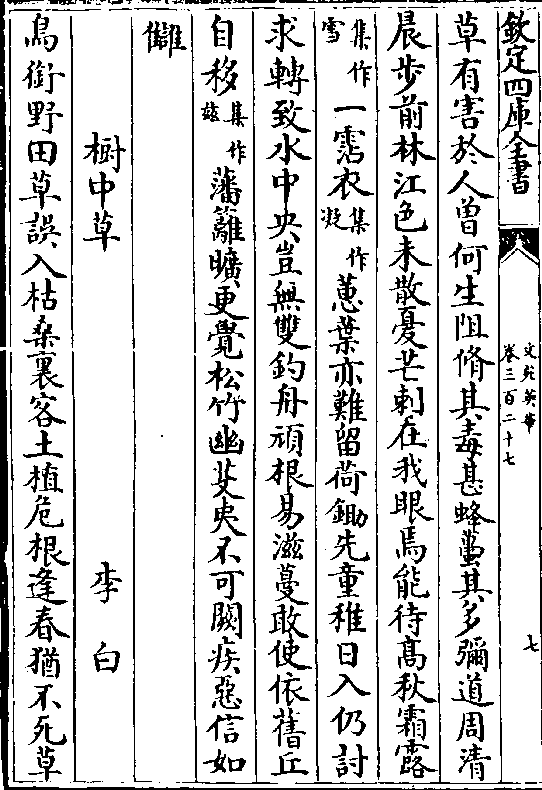 欽定四庫全書
文苑英華
卷三百二十七
七
草有害於人曾何生阻脩其毒甚蜂蠆其多彌道周清
晨步前林江色未散憂芒刺在我眼焉能待髙秋霜露
集作雪一霑衣集作凝蕙葉亦難留荷鋤先童稚日入仍討
求轉致水中央豈無雙釣舟頑根易滋蔓敢使依舊丘
自移集作兹藩籬曠更覺松竹幽芟夷不可闕疾惡信如
讎
樹中草
李白
鳥銜野田草誤入枯桑裏客土植危根逢春猶不死草